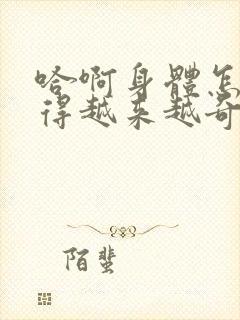 哈啊身體怎
得越来越奇
陌蜚